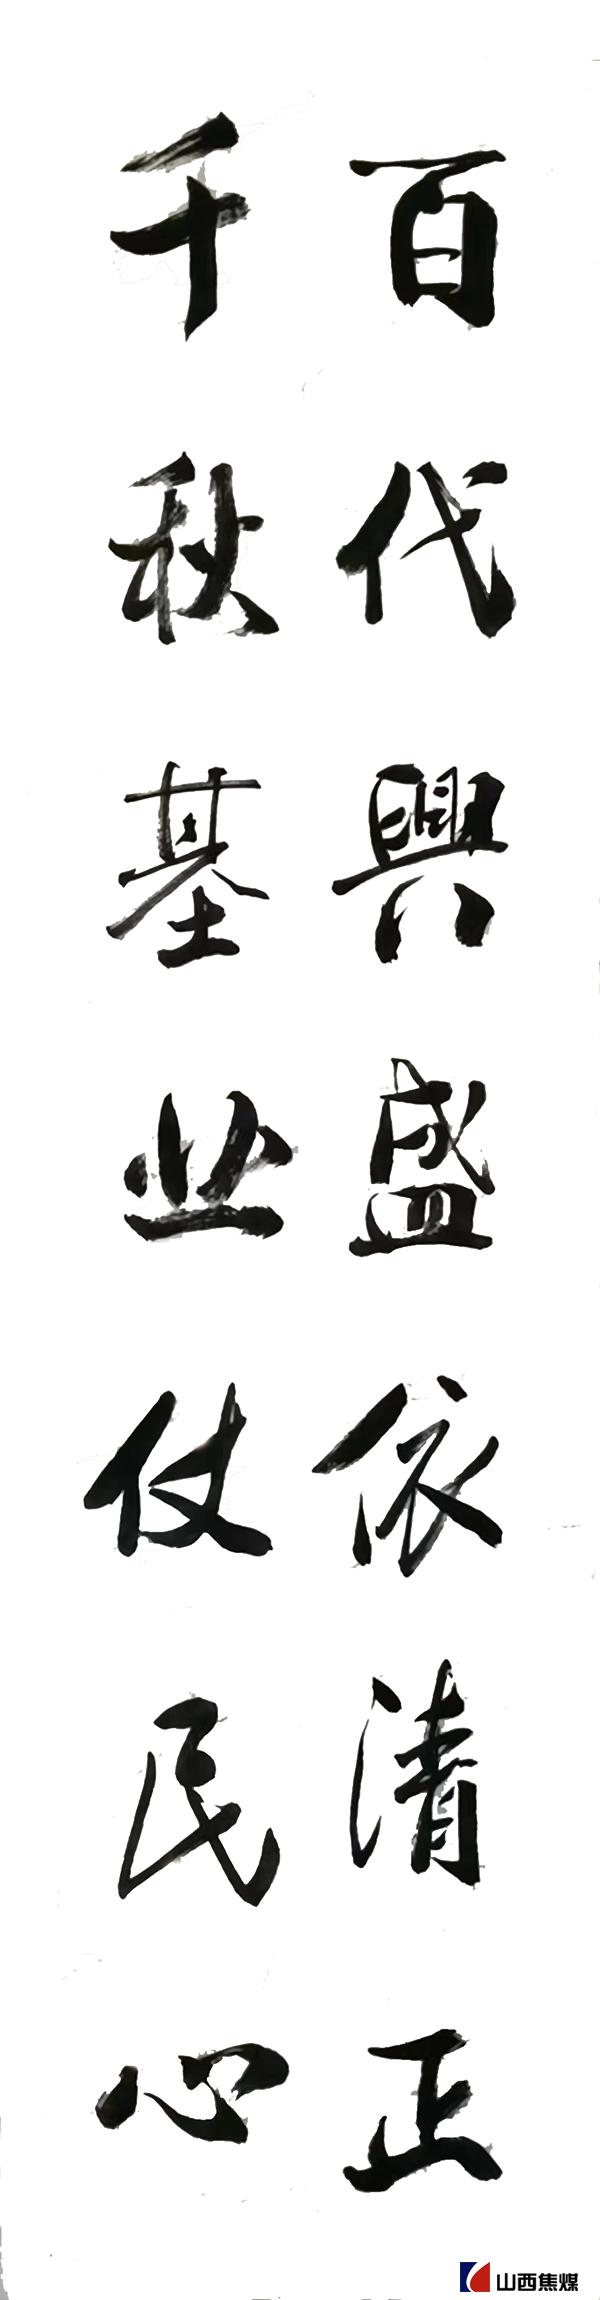 百代興盛依清正
千秋基业仗民心
山西焦煤